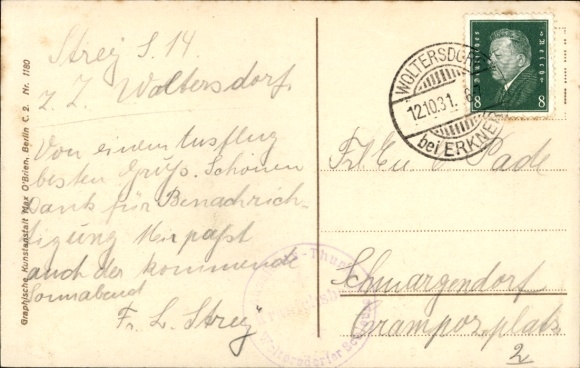 Strey S. 14
z. Z. Woltersdorf.
Von einem Ausflug
besten Gruß. Schönen
Dank für Benachrich-
tigung Mir paßt
auch der kommende
Sonnabend
Fr. L. Strey
Graphische Kunstanstalt Max O'Brien, Berlin C. 2. Nr. 1180
WOLTERSDORF
12.10.31.
bei ERKNER
Deutsches Reich
8 8
Pade
Schmargendorf
platz
2
Woltersdorfer Schleuse